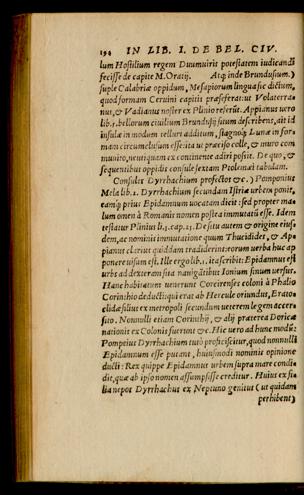 194 IN LIB. I. DE BEL. CIV.
lum Hostilium regem Duumuiris potestatem iudicandi
fecisse de capite M. Oratij. Atqꝫ inde Brundusium.)
suple Calabriæ oppidum, Mesapiorum lingua sic dictum,
quod formam Ceruini capitis præferat: ut Volaterra-
nus, & Vadianus noster ex Plinio referūt. Appianus uero
lib. 2. bellorum ciuilium Brundusij situm describens, ait id
insulæ in modum telluri additum, Lunæ in for-
mam circumelusum esse: ita ut præcipio colle, & muro com
munito, neutiquam ex continente adiri possit. De quo, &
sequentibus oppidis consule, etiam Ptolemæi tabulam.
Consules Dyrrhachium profecti &c.) Pomponius
Mela lib. 2. Dyrrhachium secundam Istriæ urbem ponit,
eamqꝫ prius Epidamnum uocatam dicit: sed propter ma-
lum omen à Romanis nomen postea immutatū esse. Idem
testatur Plinius li. 3. cap. 23. De situ autem & origine eius-
dem, ac nominis immutatione quum Thucidides, & Ap-
pianus clarius quiddam tradiderint: eorum uerba huc ap
ponere uisum est. Ille ergo lib. 1. ita scribit: Epidamnus est
urbs ad dexteram sita nauigātibus Ionium sinum uersus.
Hanc habitatum uenerunt Corcirenses coloni à Phalio
Corinthio deducti: qui erat ab Hercule oriundus, Erato-
clidæ filius ex metropoli secundum ueterem legem accer-
sito. Nonnulli etiam Corinthij, & alij præterea Doricæ
nationis ex Colonis fuerunt &c. Hic uero ad hunc modū:
Pompeius Dyrrhachium turò proficiscitur, quod nonnulli
Epidamnum esse putant, huiusmodi nominis opinione
ducti: Rex quippe Epidamnus urbem supra mare condi-
dit, quæ ab ipso nomen assumpsisse creditur. Huius ex fi-
lia nepos Dyrrachus ex Neptuno genitus (ut quidam
perhibent)